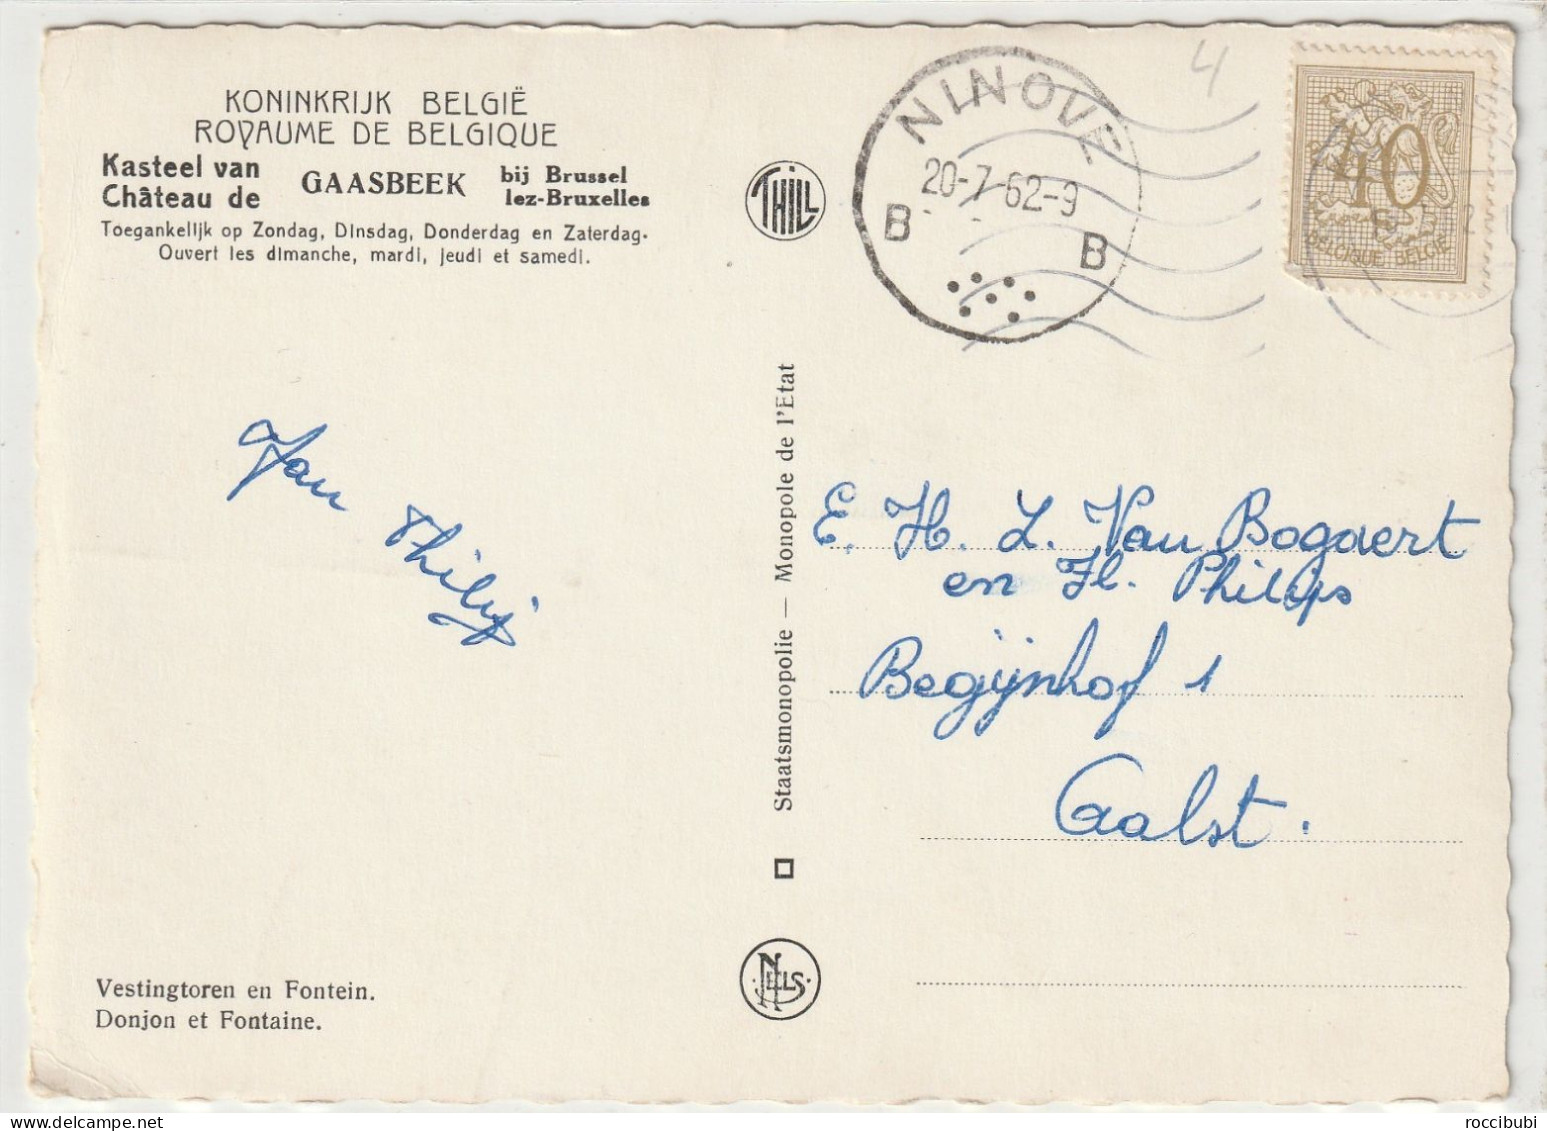 KONINKRIJK BELGIË
ROYAUME DE BELGIQUE
Kasteel van GAASBEEK bij Brussel
Château de lez-Bruxelles
Toegankelijk op Zondag, Dinsdag, Donderdag en Zaterdag.
Ouvert les dimanche, mardi, jeudi et samedi.
THILL
NINOVE
20-7-62-9
B B
4
40
BELGIQUE BELGIË
Jan
Philips
Staatsmonopolie — Monopole de l'Etat
E. H. L. Van Bogaert
en H. Philips
Begijnhof 1
Aalst.
NELS
Vestingtoren en Fontein.
Donjon et Fontaine.
delcampe.net
roccibubi